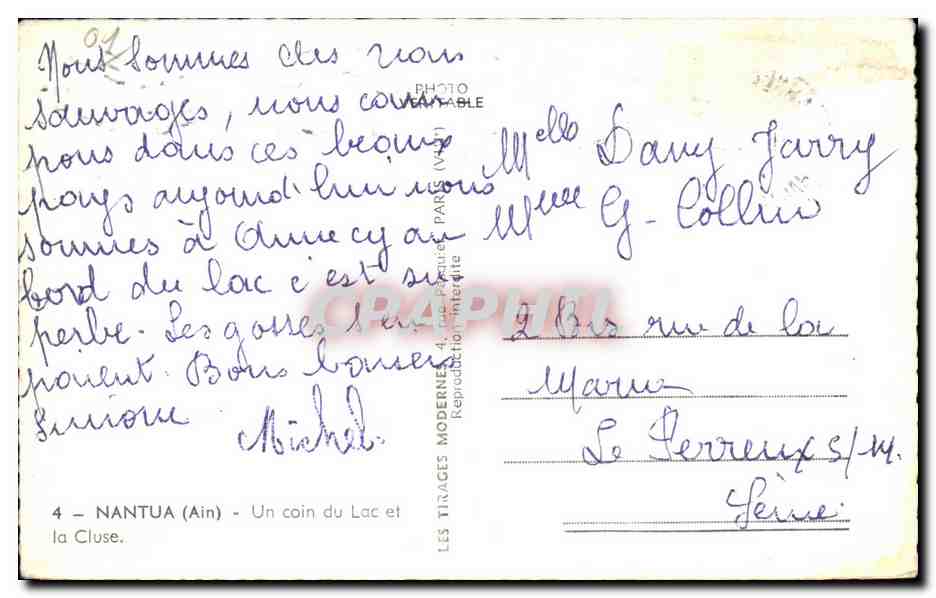 01
Nous sommes des vrais
sauvages, nous cam
pons dans ces beaux
pays aujourd'hui nous
sommes à Annecy au
bord du lac c'est su
perbe. Les gosses s'en
paient. Bons baisers
Simone Michel.
4 - NANTUA (Ain) - Un coin du Lac et
la Cluse.
PHOTO
VERITABLE
LES TIRAGES MODERNES, 4, rue Pasquier, PARIS (VIIIe)
Reproduction interdite
CRAPHIL
Melle Dany Jarry
Mme G. Collin
2 Bis rue de la
Marne
Le Perreux s/M.
Seine.